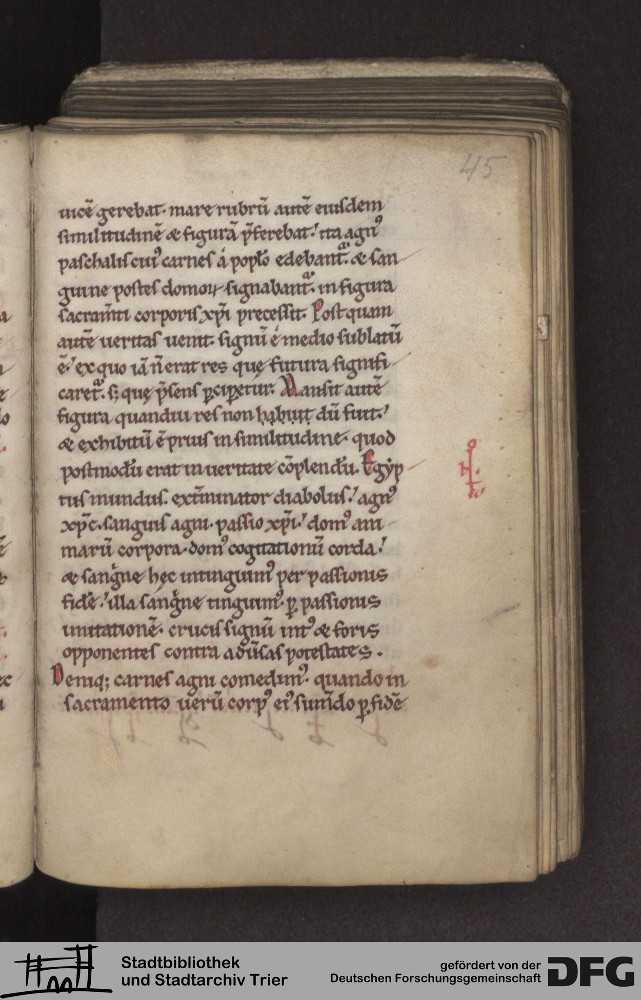 45
uicē gerebat. mare rubrū autē eiusdem
similitudinē & figurā p̄ferebat. ita agn᷒
paschalis cui᷒ carnes á pop̄lo edebant᷑. & san-
guine postes domoꝝ signabant᷑. in figura
sacram̄ti corporis xp̄i precessit. Postquam
autē ueritas uenit. signū é medio sublatū
ē. ex quo iā n̄ erat res quę futura signifi-
caret᷑. s; quę p̄sens ꝑciperetur. Mansit autē
figura quandiu res non habuit dū fuit.
& exhibitū ē prius in similitudine. quod
postmodū erat in ueritate cōplendū. Egyp-
tus mundus. ext̄minator diabolus. agn᷒
xp̄c. sanguis agni. passio xp̄i. dom᷒ ani-
marū corpora. dom᷒ cogitationū corda.
& sangͥne hęc intinguim᷒ per passionis
fidē. illa sangͥne tinguim᷒. ꝑ passionis
imitationē. crucis signū int᷒ & foris
opponentes contra adūsas potestates.
Deniq; carnes agni comedim᷒. quando in
sacramento uerū corp᷒ ei᷒ sum̄do ꝑ fidē
Stadtbibliothek
und Stadtarchiv Trier
gefördert von der
Deutschen Forschungsgemeinschaft
DFG